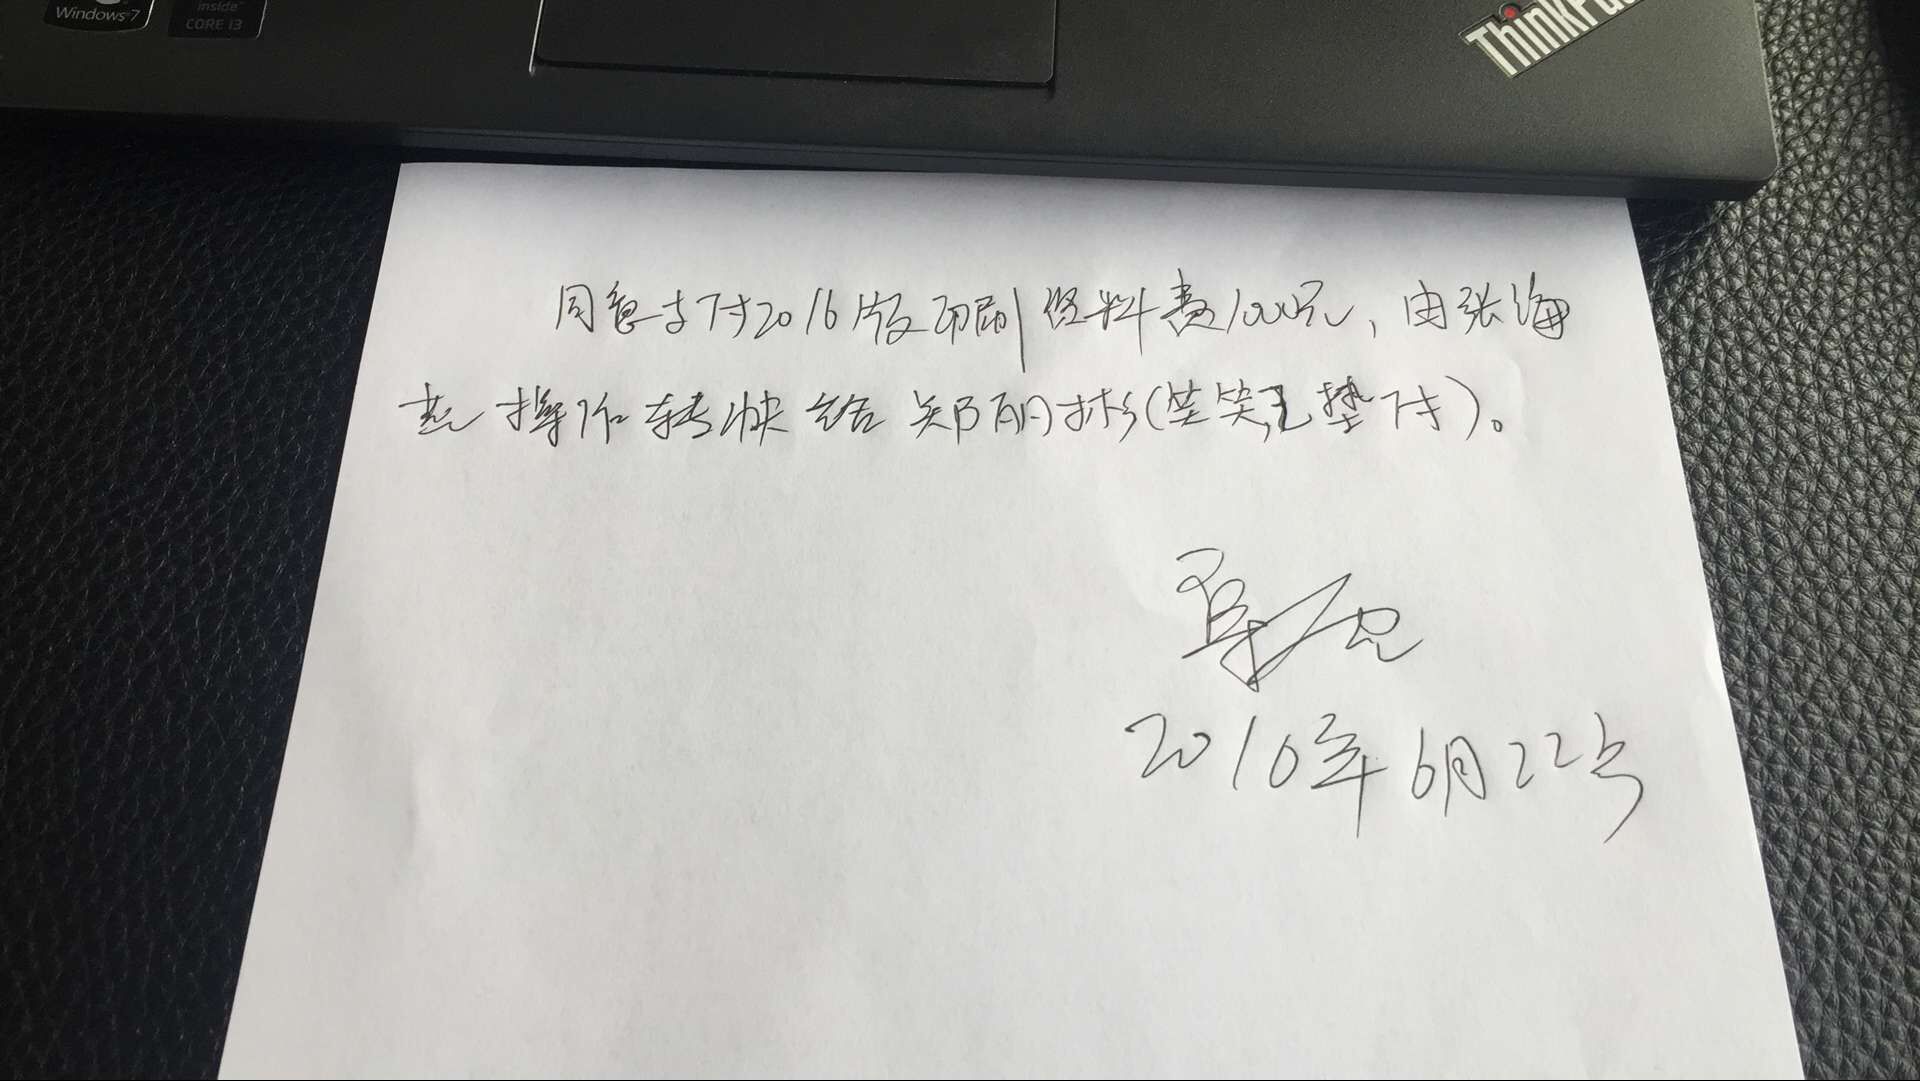 Windows 7
inside
CORE i3
ThinkPad
同意支付2016版印刷资料费1000元，由张海
操作转帐给郑丽彬(笑笑已垫付)。
2016年6月22号